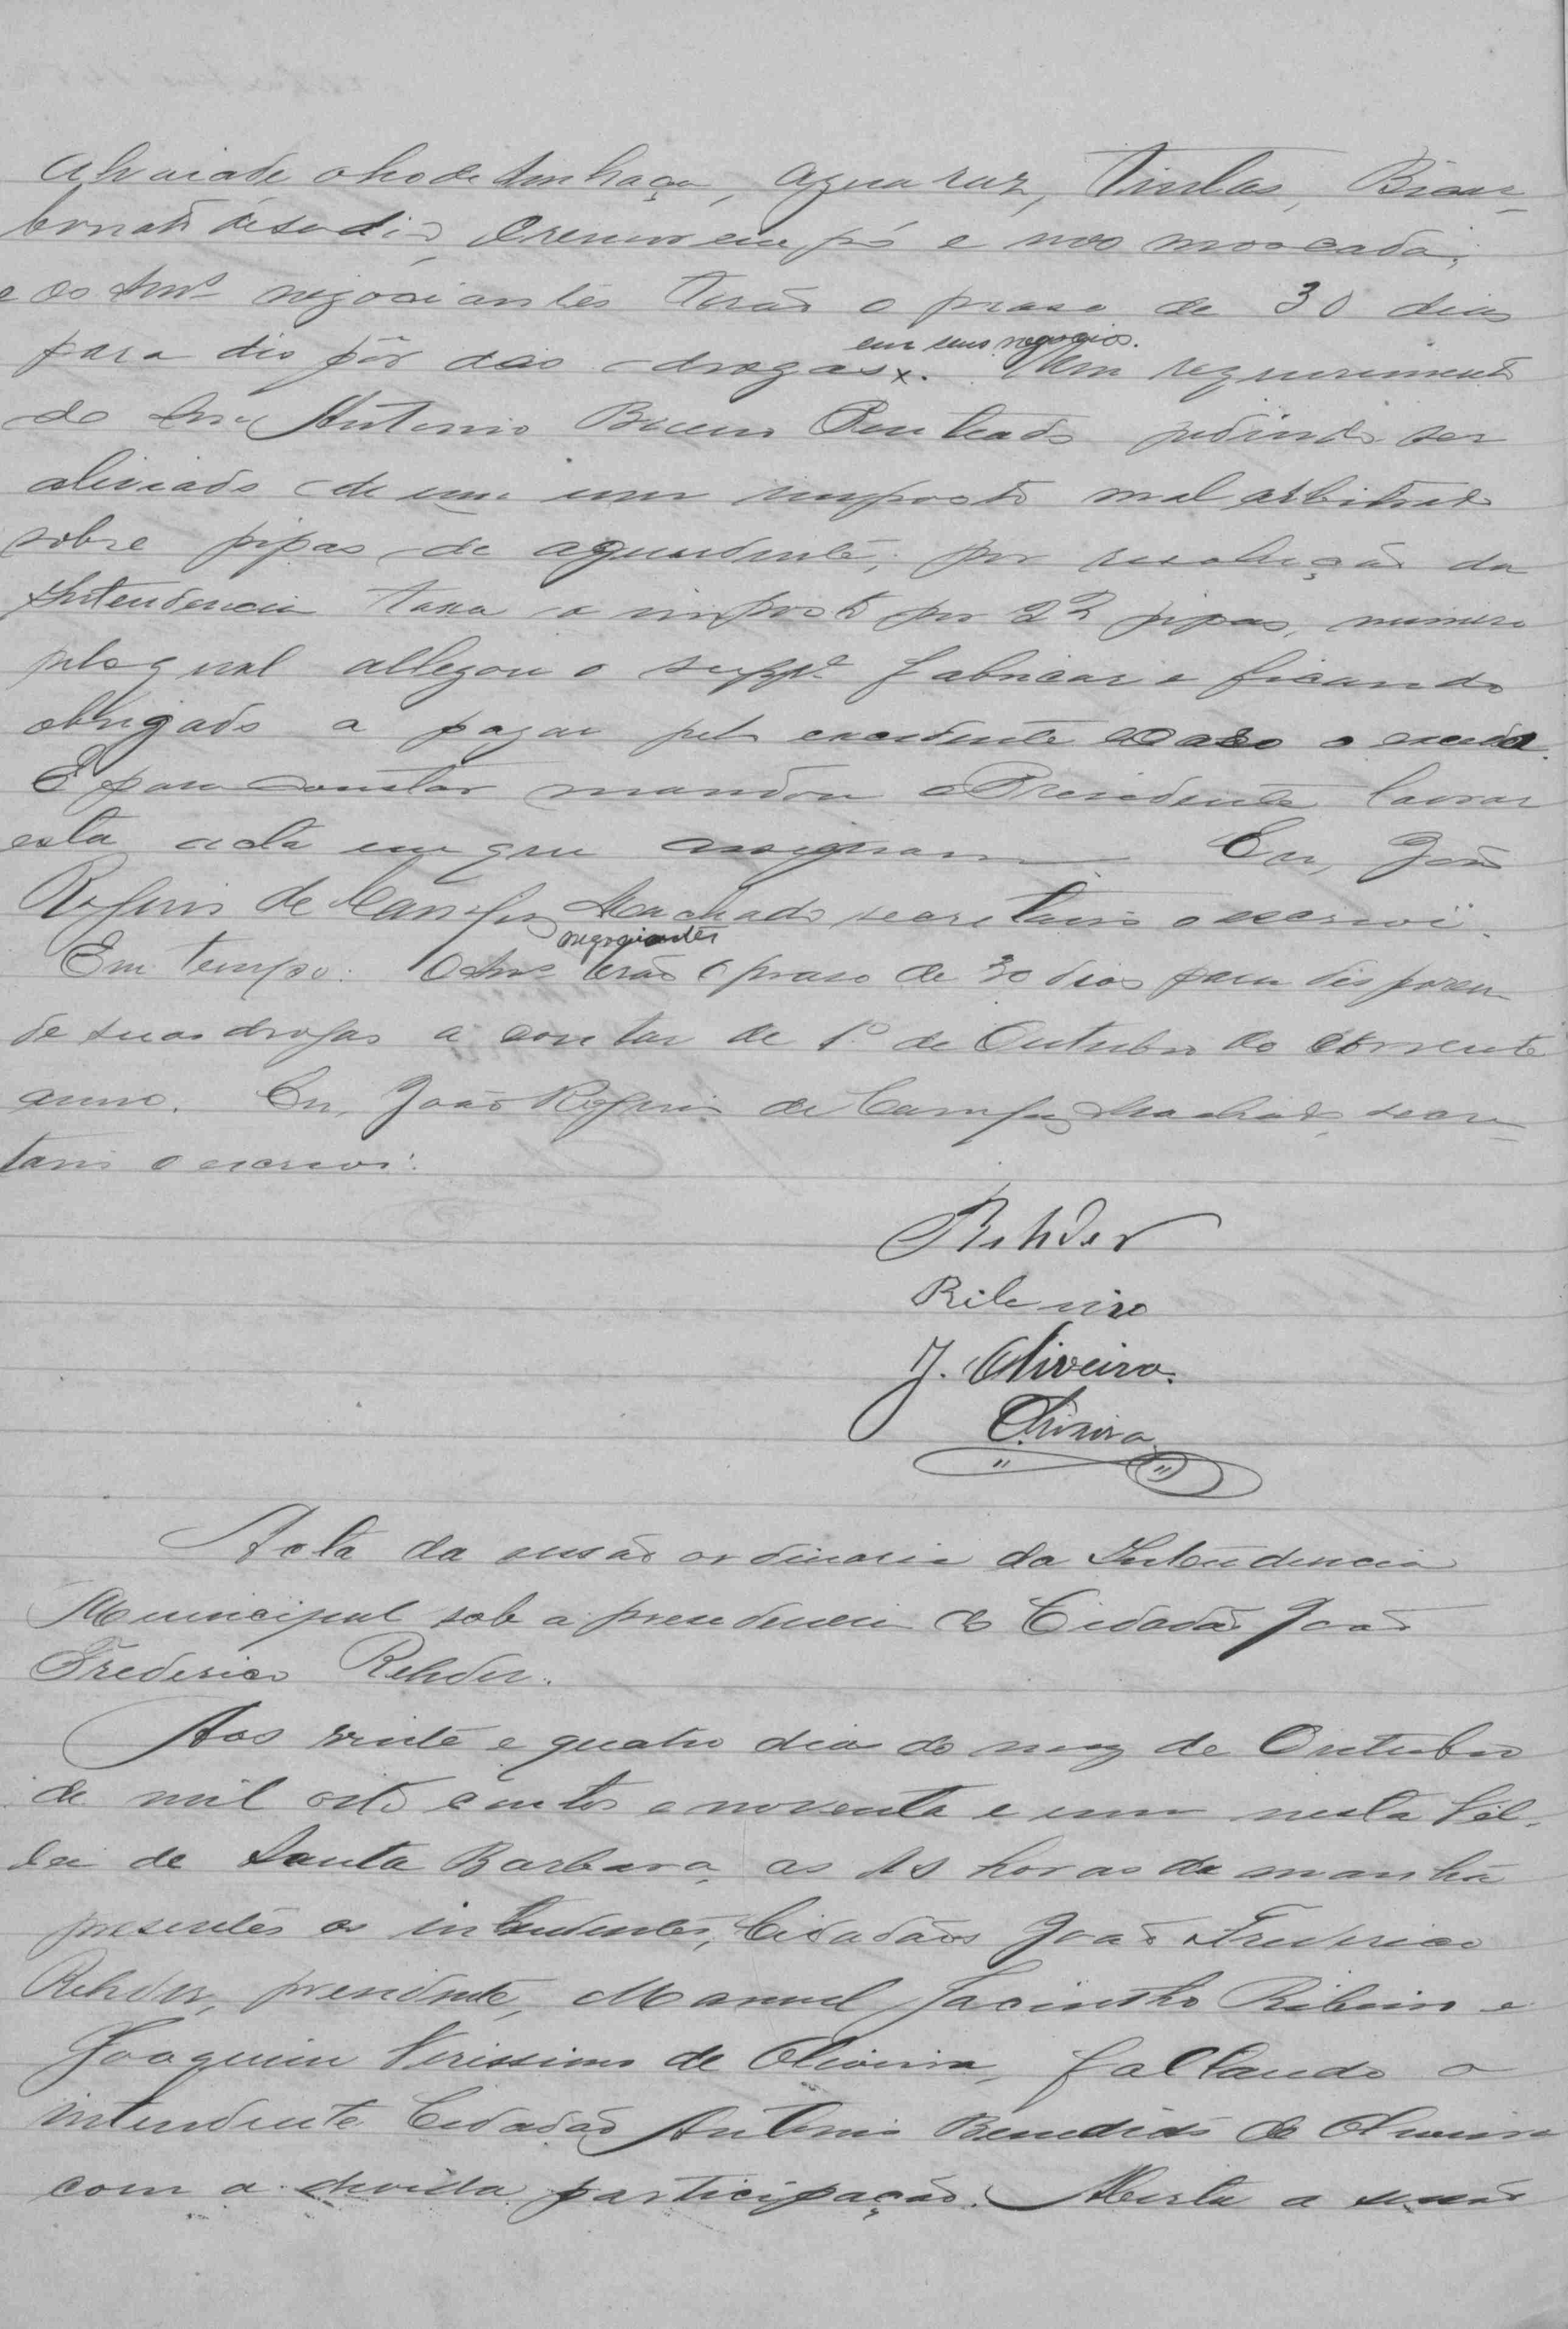 Alvaiade oleo de linhaça, agua raz, Tintas, Bicar-
bonato de sodio, Cremor em pó e noz moscada;
e os Snrs negociantes terão o praso de 30 dias
para dispôr das drogas x. Um requerimento
em seus negocios.
do Snr Antonio Bueno Penteado pedindo ser
aliviado de um um imposto mal arbitrado
sobre pipas de aguardente; por resolução da
Intendencia taxa o imposto por 22 pipas, numero
pelo qual allegou o suppe fabricar e ficando
obrigado a pagar pelo excedente caso o exceda.
E para constar mandou o Presidente lavrar
esta acta em que assignam Eu, João
de Campos Machado secretario o escrevi.
negociantes
Em tempo. O Snrs terão o praso de 30 dias para disporem
de suas drogas a contar de 1º de Outubro do corrente
anno. Eu, João de Campos Machado, secre-
tario o escrevi.
Rehder
Ribeiro
J. Oliveira.
Oliveira
Acta da sessão ordinaria da Intendencia
Municipal sob a presidencia do Cidadão João
Frederico Rehder.
Aos vinte e quatro dias do mez de Outubro
de mil oito centos e noventa e um nesta Vil-
la de Santa Barbara, as horas da manhã
presentes os intendentes, Cidadãos João Frederico
Rehder, presidente, Manuel Jacintho Ribeiro e
Joaquim Verissimo de Oliveira, faltando o
intendente Cidadão Antonio Benedicto de Oliveira
com a devida participação. Aberta a sessão